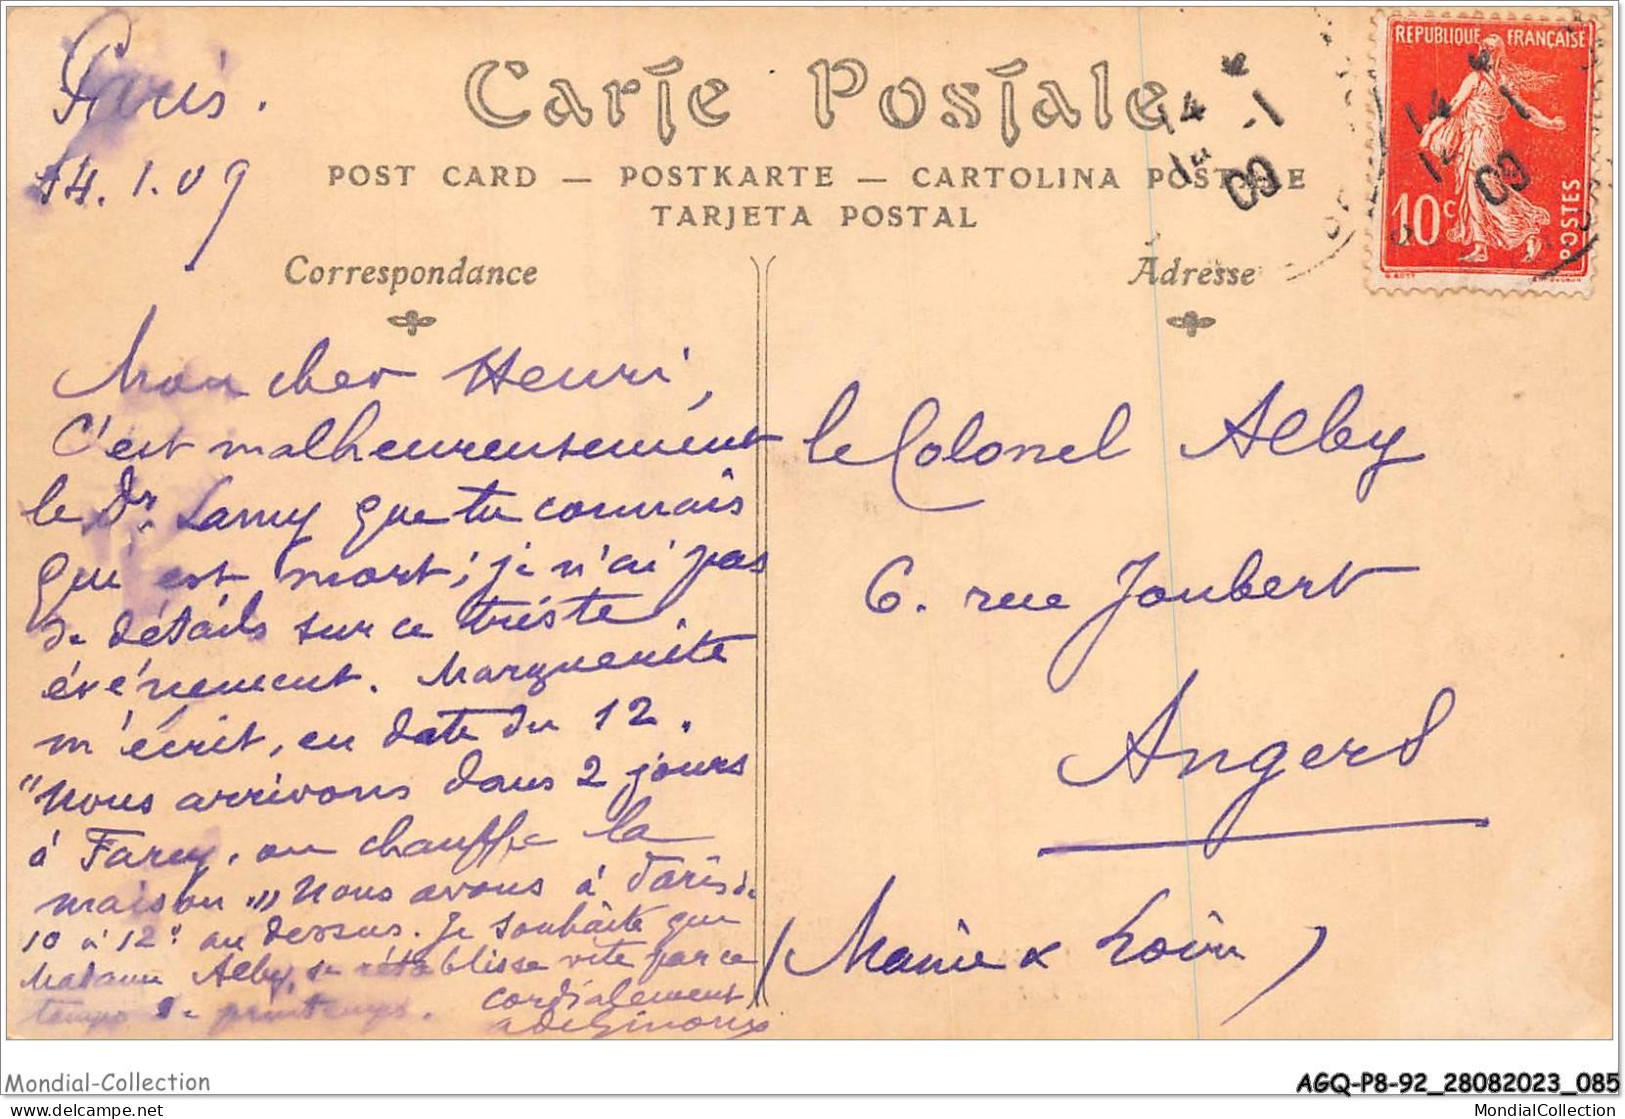 Paris.
14.1.09
Carte Postale
POST CARD — POSTKARTE — CARTOLINA POSTALE
TARJETA POSTAL
REPUBLIQUE FRANÇAISE
10c
POSTES
14
1
09
Correspondance
Mon cher Henri,
C'est malheureusement
le Dr. Lamy que tu connais
qui est mort; je n'ai pas
de détails sur ce triste
événement. Marguerite
m'écrit, en date du 12.
"Nous arrivons dans 2 jours
à Farcy, on chauffe la
maison." Nous avons à Paris de
10 à 12° au dessus. Je souhaite que
Madame Alby, se rétablisse vite par ce
temps de printemps.
cordialement
Adresse
le Colonel Alby
6. rue Joubert
Angers
(Maine & Loire)
Mondial-Collection
AGQ-P8-92_28082023_085
www.delcampe.net
MondialCollection